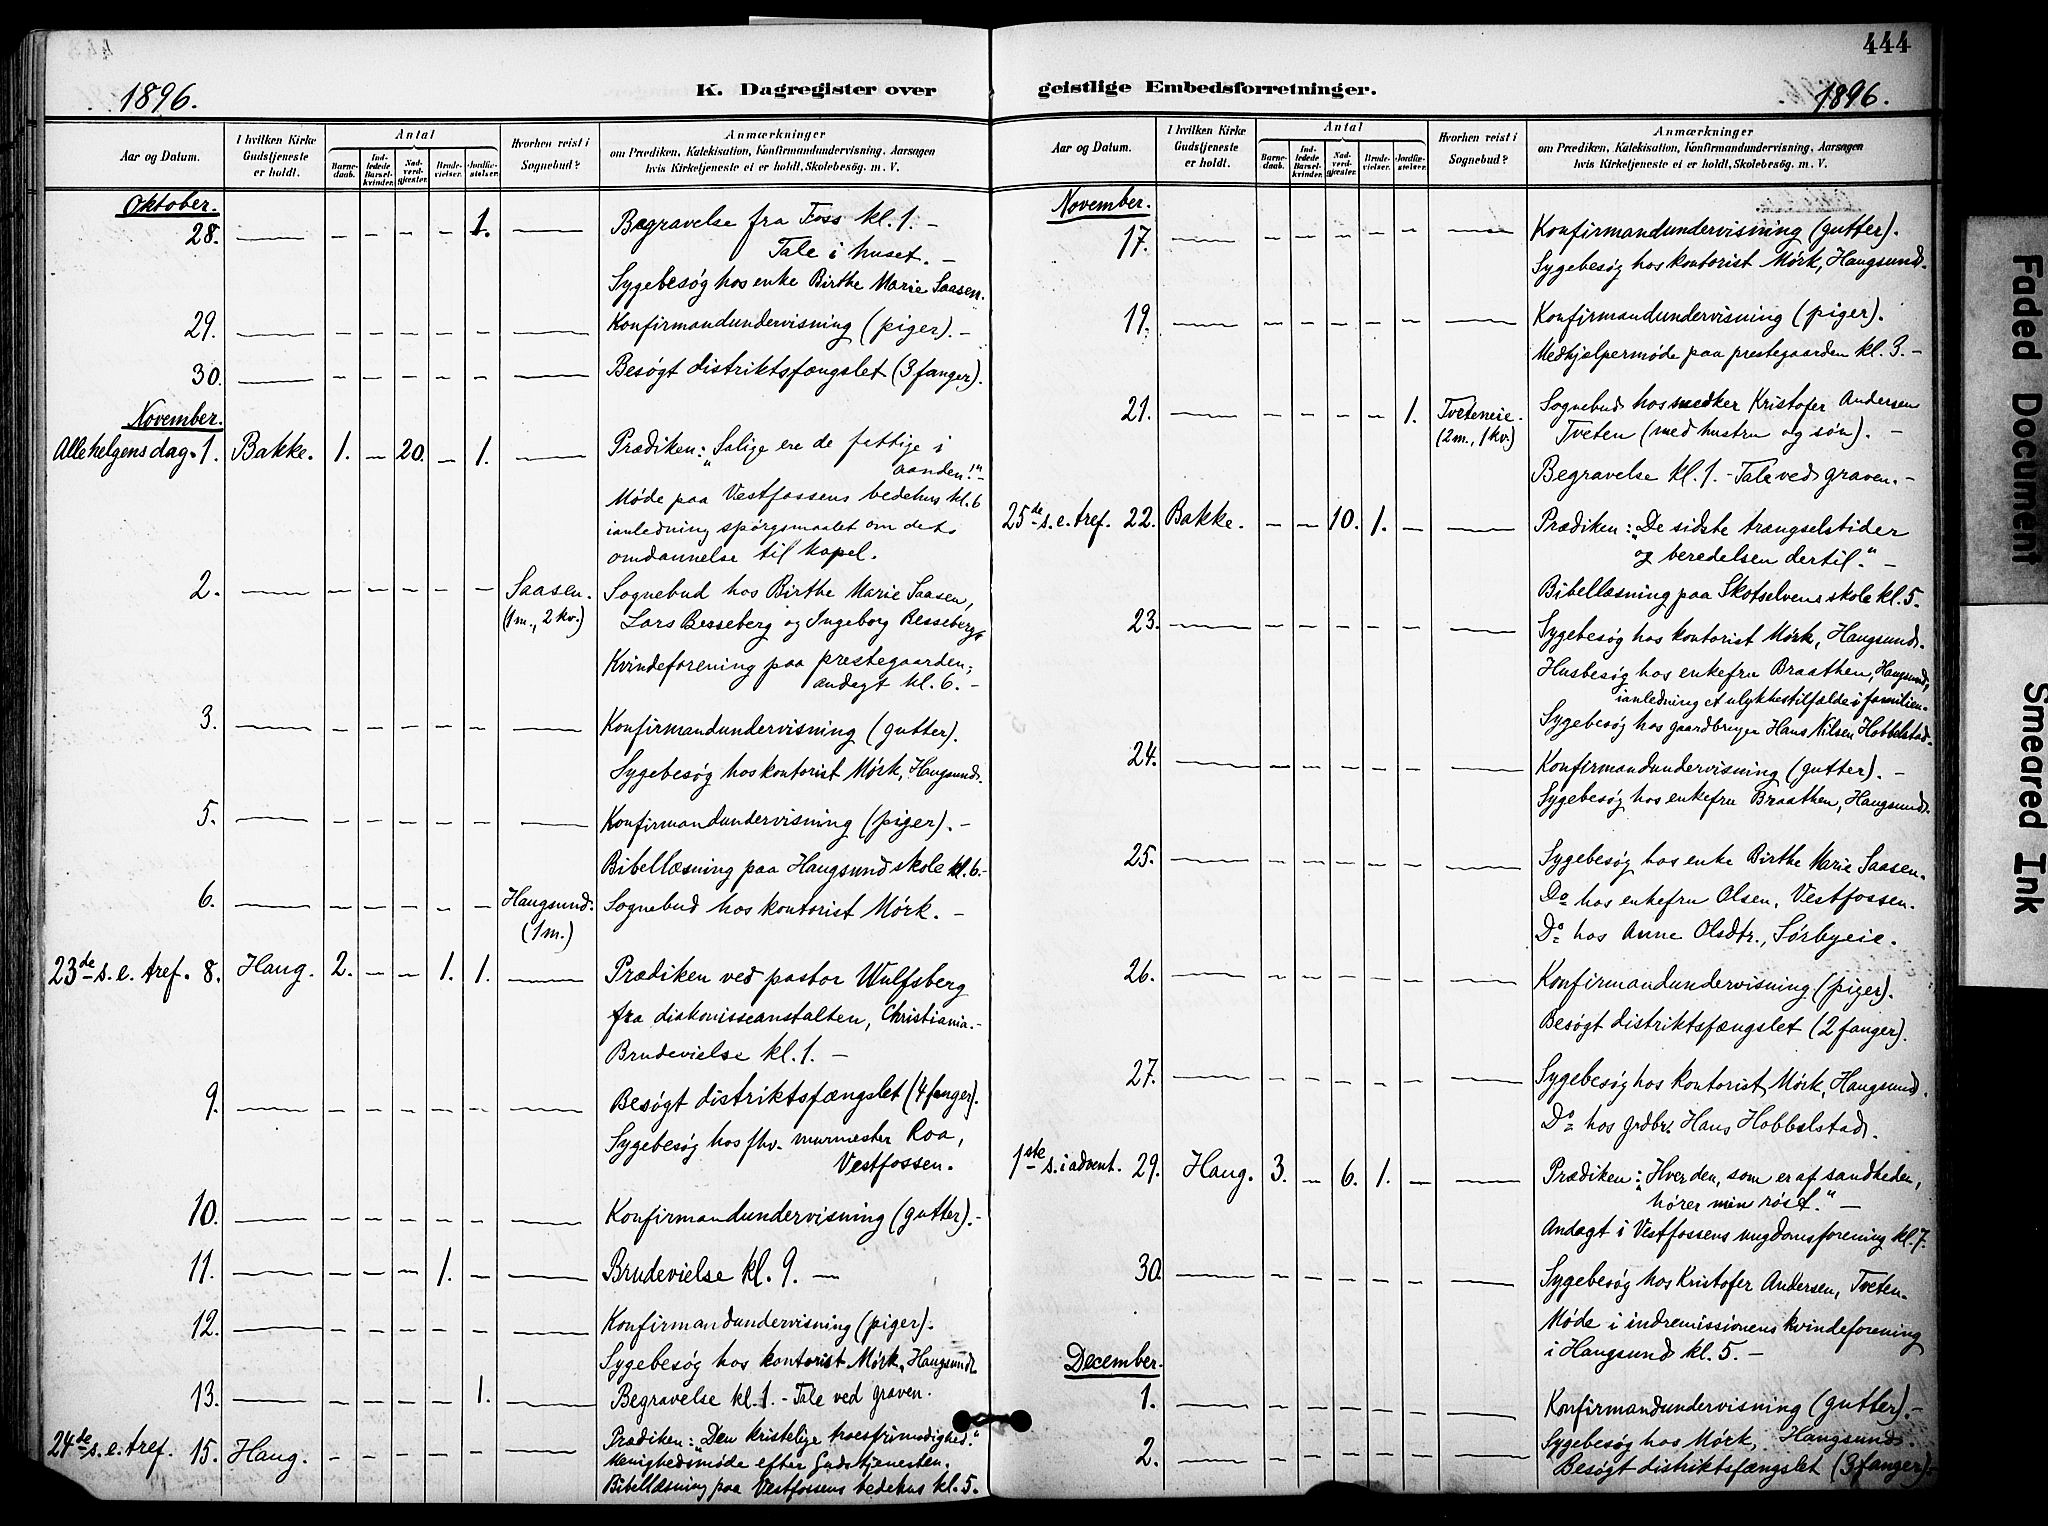 444
1896.
K. Dagregister over
Aar og Datum.
I hvilken Kirke Gudstjeneste er holdt.
Antal
Barnedaab.
Indledede Barselkvinder.
Nadverdgjester.
Brudevielser.
Jordfæstelser.
Hvorhen reist i Sognebud?
Anmærkninger
om Prædiken, Katekisation, Konfirmandundervisning, Aarsagen
hvis Kirketjeneste ei er holdt, Skolebesög. m. V.
Oktober.
28. — — — — — 1. — Begravelse fra Foss kl. 1. –
Tale i huset. –
Sygebesøg hos enke Birthe Marie Saasen.
29. — — — — — — — Konfirmandundervisning (piger). –
30. — — — — — — — Besøgt distriktsfængslet (3 fanger).
November.
Allehelgensdag. 1. Bakke. 1. — 20. — 1. Prædiken: "Salige ere de fattige i
aanden!" –
Møde paa Vestfossens bedehus kl. 6
ianledning spørgsmaalet om dets
omdannelse til kapel.
2. — — — — — — Saasen. Sognebud hos Birthe Marie Saasen,
(1 m., 2 kv.) Lars Besseberg og Ingeborg Besseberg.
Kvindeforening paa prestegaarden;
andagt kl. 6. –
3. — — — — — — — Konfirmandundervisning (gutter).
Sygebesøg hos kontorist Mørk, Haugsund.
5. — — — — — — — Konfirmandundervisning (piger). –
Bibellæsning paa Haugsund skole kl. 6. –
6. — — — — — — Haugsund. Sognebud hos kontorist Mørk. –
(1 m.)
23de s. e. tref. 8. Haug. 2. — — 1. 1. — Prædiken ved pastor Wulfsberg
fra diakonisseanstalten, Christiania. –
Brudevielse kl. 1. –
9. — — — — — — — Besøgt distriktsfængslet (4 fanger).
Sygebesøg hos fhv. murmester Roa,
Vestfossen.
10. — — — — — — — Konfirmandundervisning (gutter). –
11. — — — — 1. — — Brudevielse kl. 9. —
12. — — — — — — — Konfirmandundervisning (piger).
Sygebesøg hos kontorist Mørk, Haugsund.
13. — — — — — 1. Begravelse kl. 1. – Tale ved graven.
24de s. e. tref. 15. Haug. — — — — — — Prædiken: "Den kristelige troesfrimodighed."
Menighedsmøde efter Gudstjenesten.
Bibellæsning paa Vestfossens bedehus kl. 5.
geistlige Embedsforretninger.
1896.
Aar og Datum.
I hvilken Kirke Gudstjeneste er holdt.
Antal
Barnedaab.
Indledede Barselkvinder.
Nadverdgjester.
Brudevielser.
Jordfæstelser.
Hvorhen reist i Sognebud?
Anmærkninger
om Prædiken, Katekisation, Konfirmandundervisning, Aarsagen
hvis Kirketjeneste ei er holdt, Skolebesög, m. V.
November.
17. — — — — — — — Konfirmandundervisning (gutter).
Sygebesøg hos kontorist Mørk, Haugsund.
19. — — — — — — — Konfirmandundervisning (piger).
Medhjælpermøde paa prestegaarden kl. 3. –
21. — — — — — 1. Tveteneie. Sognebud hos snedker Kristofer Andersen
(2 m., 1 kv.) Tveten (med hustru og søn). –
Begravelse kl. 1. – Tale ved graven. –
25de s. e. tref. 22. Bakke. — — 10. 1. — — Prædiken: "De sidste trængselstider
og beredelsen dertil." –
Bibellæsning paa Skotselvens skole kl. 5.
23. — — — — — — — Sygebesøg hos kontorist Mørk, Haugsund.
Husbesøg hos enkefru Braathen, Haugsund,
ianledning et ulykkestilfælde i familien.
Sygebesøg hos gaardbruger Hans Nilsen Hobbelstad.
24. — — — — — — — Konfirmandundervisning (gutter). –
Sygebesøg hos enkefru Braathen, Haugsund.
25. — — — — — — — Sygebesøg hos enke Birthe Marie Saasen.
Do hos enkefru Olsen, Vestfossen.
Do hos Anne Olsdtr., Sørbyeie.
26. — — — — — — — Konfirmandundervisning (piger).
Besøgt distriktsfængslet (2 fanger).
27. — — — — — — — Sygebesøg hos kontorist Mørk, Haugsund.
Do hos grdbr. Hans Hobbelstad.
1ste s. i advent. 29. Haug. 3. — 6. 1. — — Prædiken: "Hver den, som er af sandheden,
hører min røst." –
Andagt i Vestfossens ungdomsforening kl. 7.
30. — — — — — — — Sygebesøg hos Kristofer Andersen, Tveten.
Møde i indremissionens kvindeforening
i Haugsund kl. 5. –
December.
1. — — — — — — — Konfirmandundervisning (gutter). –
2. — — — — — Sygebesøg hos Mørk, Haugsund.
Besøgt distriktsfængslet (3 fanger). –
Faded Document
Smeared Ink